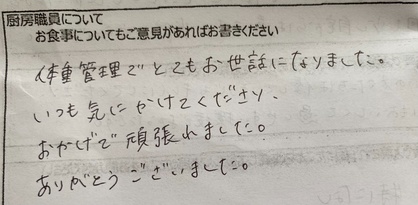 厨房職員について
お食事についてもご意見があればお書きください
体重管理でとてもお世話になりました。
いつも気にかけてくださり、
おかげで頑張れました。
ありがとうございました。